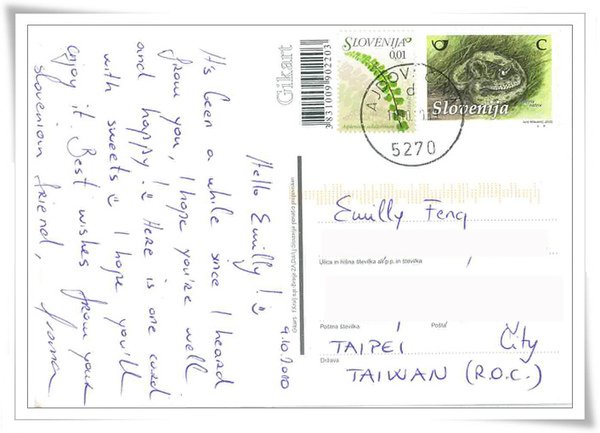 Hello Emilly! :)
9.10.2010
It's been a while since I heard
from you, I hope you're well
and happy! :) Here is one card
with sweets :) I hope you'll
enjoy it. Best wishes from your
slovenian friend,
Gikart
3831009902203
SLOVENIJA
0,01
C
Slovenija
5270
Emilly Feng
Ulica in hišna številka ali p.p. in številka
Poštna številka
Pošta
TAIPEI City
Država
TAIWAN (R.O.C.)